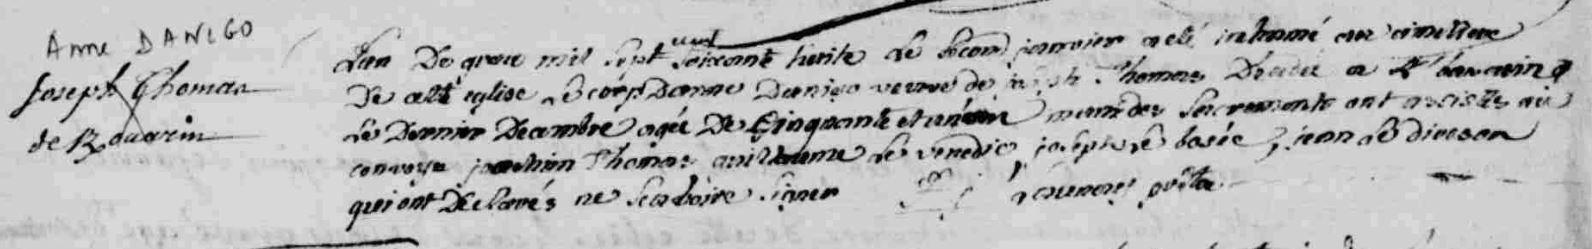 Anne DANIGO
Joseph Thomas
de Rouarin
L'an De grace mil sept cent soixante huite Le second janvier a eté inhumé au cimetiere
De cette eglise Le corps D'anne Danigo veuve de joseph Thomas Decedée a
Le Dernier Decembre agée De Cinquante et un munie des sacrements ont assistés au
convoye joachim Thomas guillaume Le joseph Le bosée, jean Le
qui ont Declarés ne scavoire signer